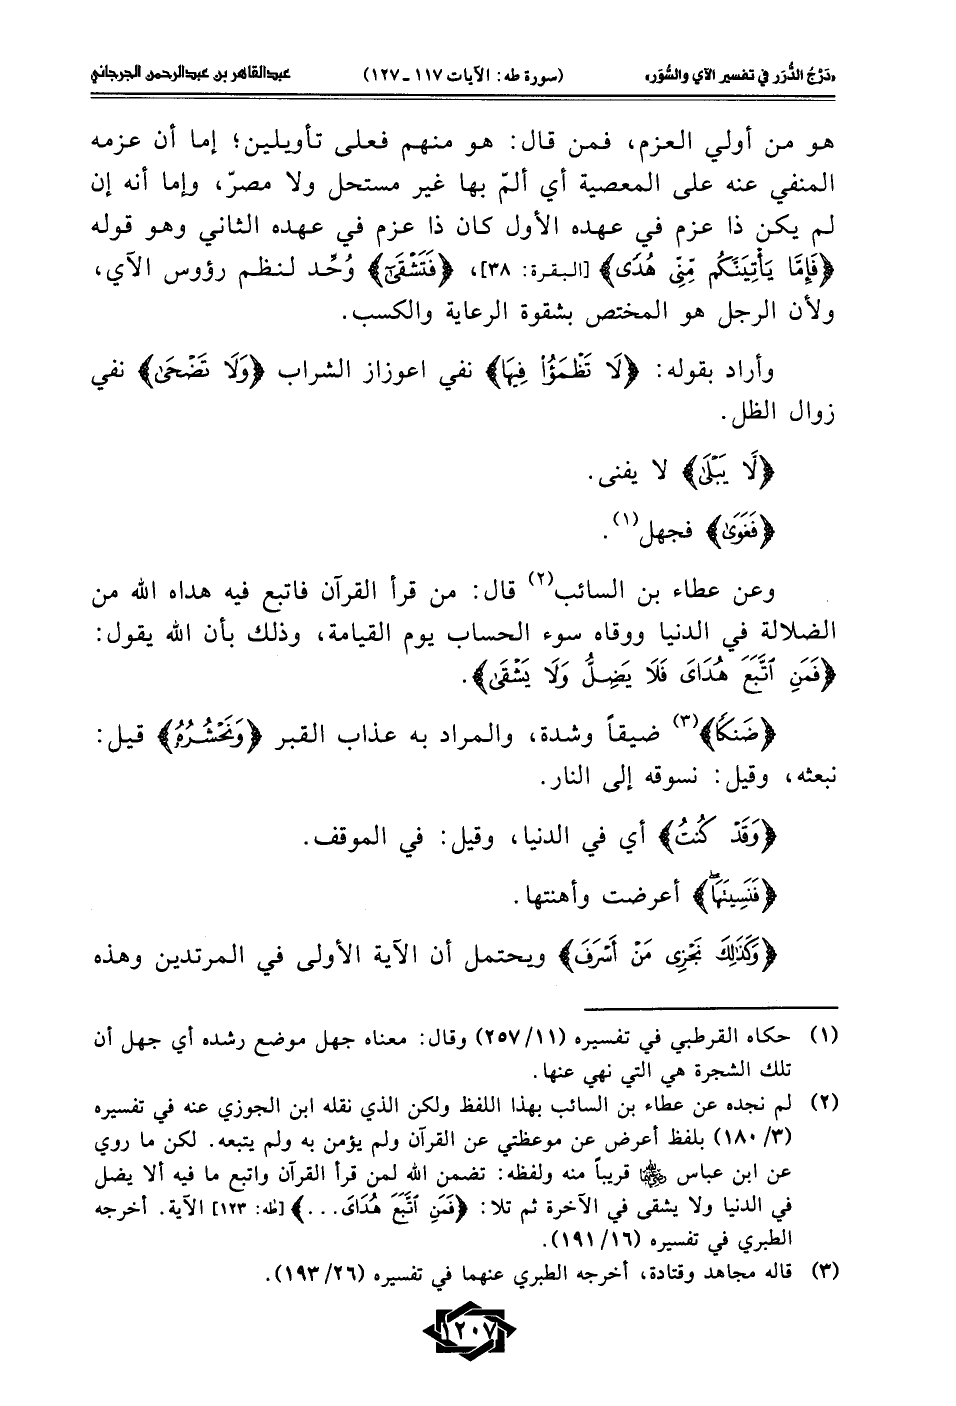 «دَرْجُ الدُّرَر في تفسير الآي والسُّوَر» (سورة طه: الآيات ١١٧ - ١٢٧) عبدالقاهر بن عبدالرحمن الجرجاني
هو من أولي العزم، فمن قال: هو منهم فعلى تأويلين؛ إما أن عزمه
المنفي عنه على المعصية أي ألمّ بها غير مستحل ولا مصرّ، وإما أنه إن
لم يكن ذا عزم في عهده الأول كان ذا عزم في عهده الثاني وهو قوله
﴿فَإِمَّا يَأْتِيَنَّكُم مِّنِّي هُدًى﴾ [البقرة: ٣٨]، ﴿فَتَشْقَىٰٓ﴾ وُحِّد لنظم رؤوس الآي،
ولأن الرجل هو المختص بشقوة الرعاية والكسب.
وأراد بقوله: ﴿لَا تَظْمَؤُا۟ فِيهَا﴾ نفي اعوزاز الشراب ﴿وَلَا تَضْحَىٰ﴾ نفي
زوال الظل.
﴿لَّا يَبْلَىٰ﴾ لا يفنى.
﴿فَغَوَىٰ﴾ فجهل(١).
وعن عطاء بن السائب(٢) قال: من قرأ القرآن فاتبع فيه هداه الله من
الضلالة في الدنيا ووقاه سوء الحساب يوم القيامة، وذلك بأن الله يقول:
﴿فَمَنِ ٱتَّبَعَ هُدَاىَ فَلَا يَضِلُّ وَلَا يَشْقَىٰ﴾.
﴿ضَنكًا﴾(٣) ضيقاً وشدة، والمراد به عذاب القبر ﴿وَنَحْشُرُهُۥ﴾ قيل:
نبعثه، وقيل: نسوقه إلى النار.
﴿وَقَدْ كُنتُ﴾ أي في الدنيا، وقيل: في الموقف.
﴿فَنَسِيتَهَا ۖ﴾ أعرضت وأهنتها.
﴿وَكَذَٰلِكَ نَجْزِى مَنْ أَسْرَفَ﴾ ويحتمل أن الآية الأولى في المرتدين وهذه
(١) حكاه القرطبي في تفسيره (٢٥٧/١١) وقال: معناه جهل موضع رشده أي جهل أن
تلك الشجرة هي التي نهي عنها.
(٢) لم نجده عن عطاء بن السائب بهذا اللفظ ولكن الذي نقله ابن الجوزي عنه في تفسيره
(١٨٠/٣) بلفظ أعرض عن موعظتي عن القرآن ولم يؤمن به ولم يتبعه. لكن ما روي
عن ابن عباس قريباً منه ولفظه: تضمن الله لمن قرأ القرآن واتبع ما فيه ألا يضل
في الدنيا ولا يشقى في الآخرة ثم تلا: ﴿فَمَنِ ٱتَّبَعَ هُدَاىَ...﴾ [طه: ١٢٣] الآية. أخرجه
الطبري في تفسيره (١٩١/١٦).
(٣) قاله مجاهد وقتادة، أخرجه الطبري عنهما في تفسيره (١٩٣/٢٦).
١٢٠٧